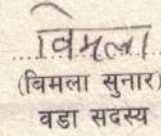 विमला
(बिमला सुनार)
वडा सदस्य